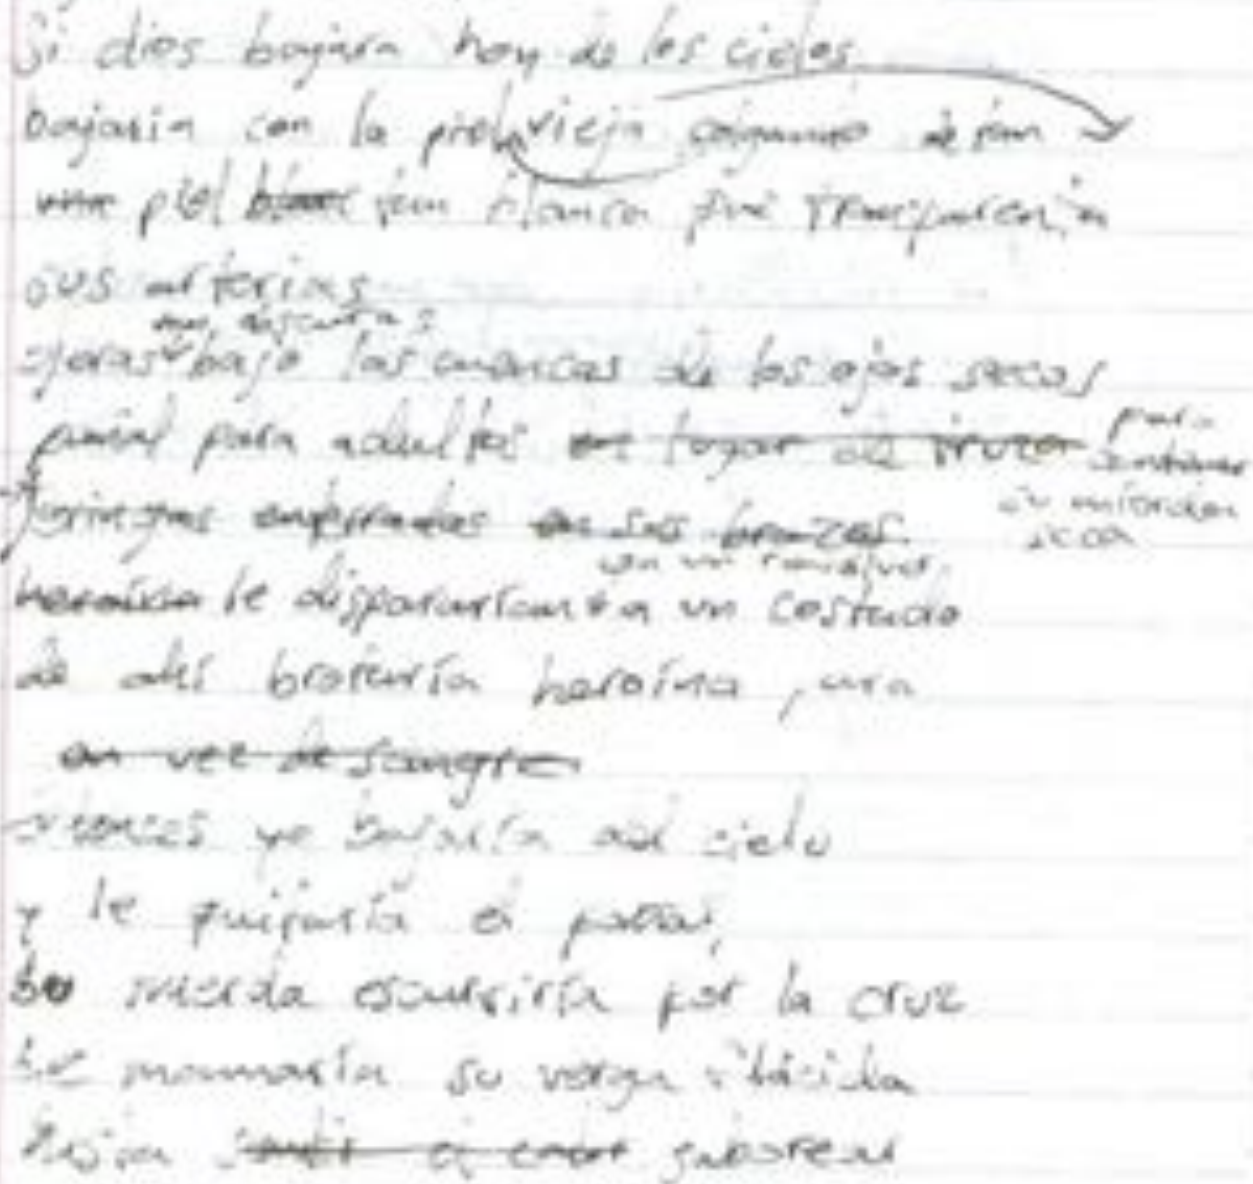 Si dios bajara hoy de los cielos
bajaría con la piel vieja colgando de tan
piel tan blanca que transparenta
sus arterias
ojeras bajo las cuencas de los ojos secos
pañal para adultos en lugar de
para contener
su mierda
seca
jeringas enterradas en sus brazos
en un
heroína le dispararían a un costado
de ahí brotaría heroína, una
en vez de sangre
entonces yo bajaría del cielo
y le quitaría el pañal,
su mierda escurriría por la cruz
le mamaría su verga flácida
hasta sentir el saborear